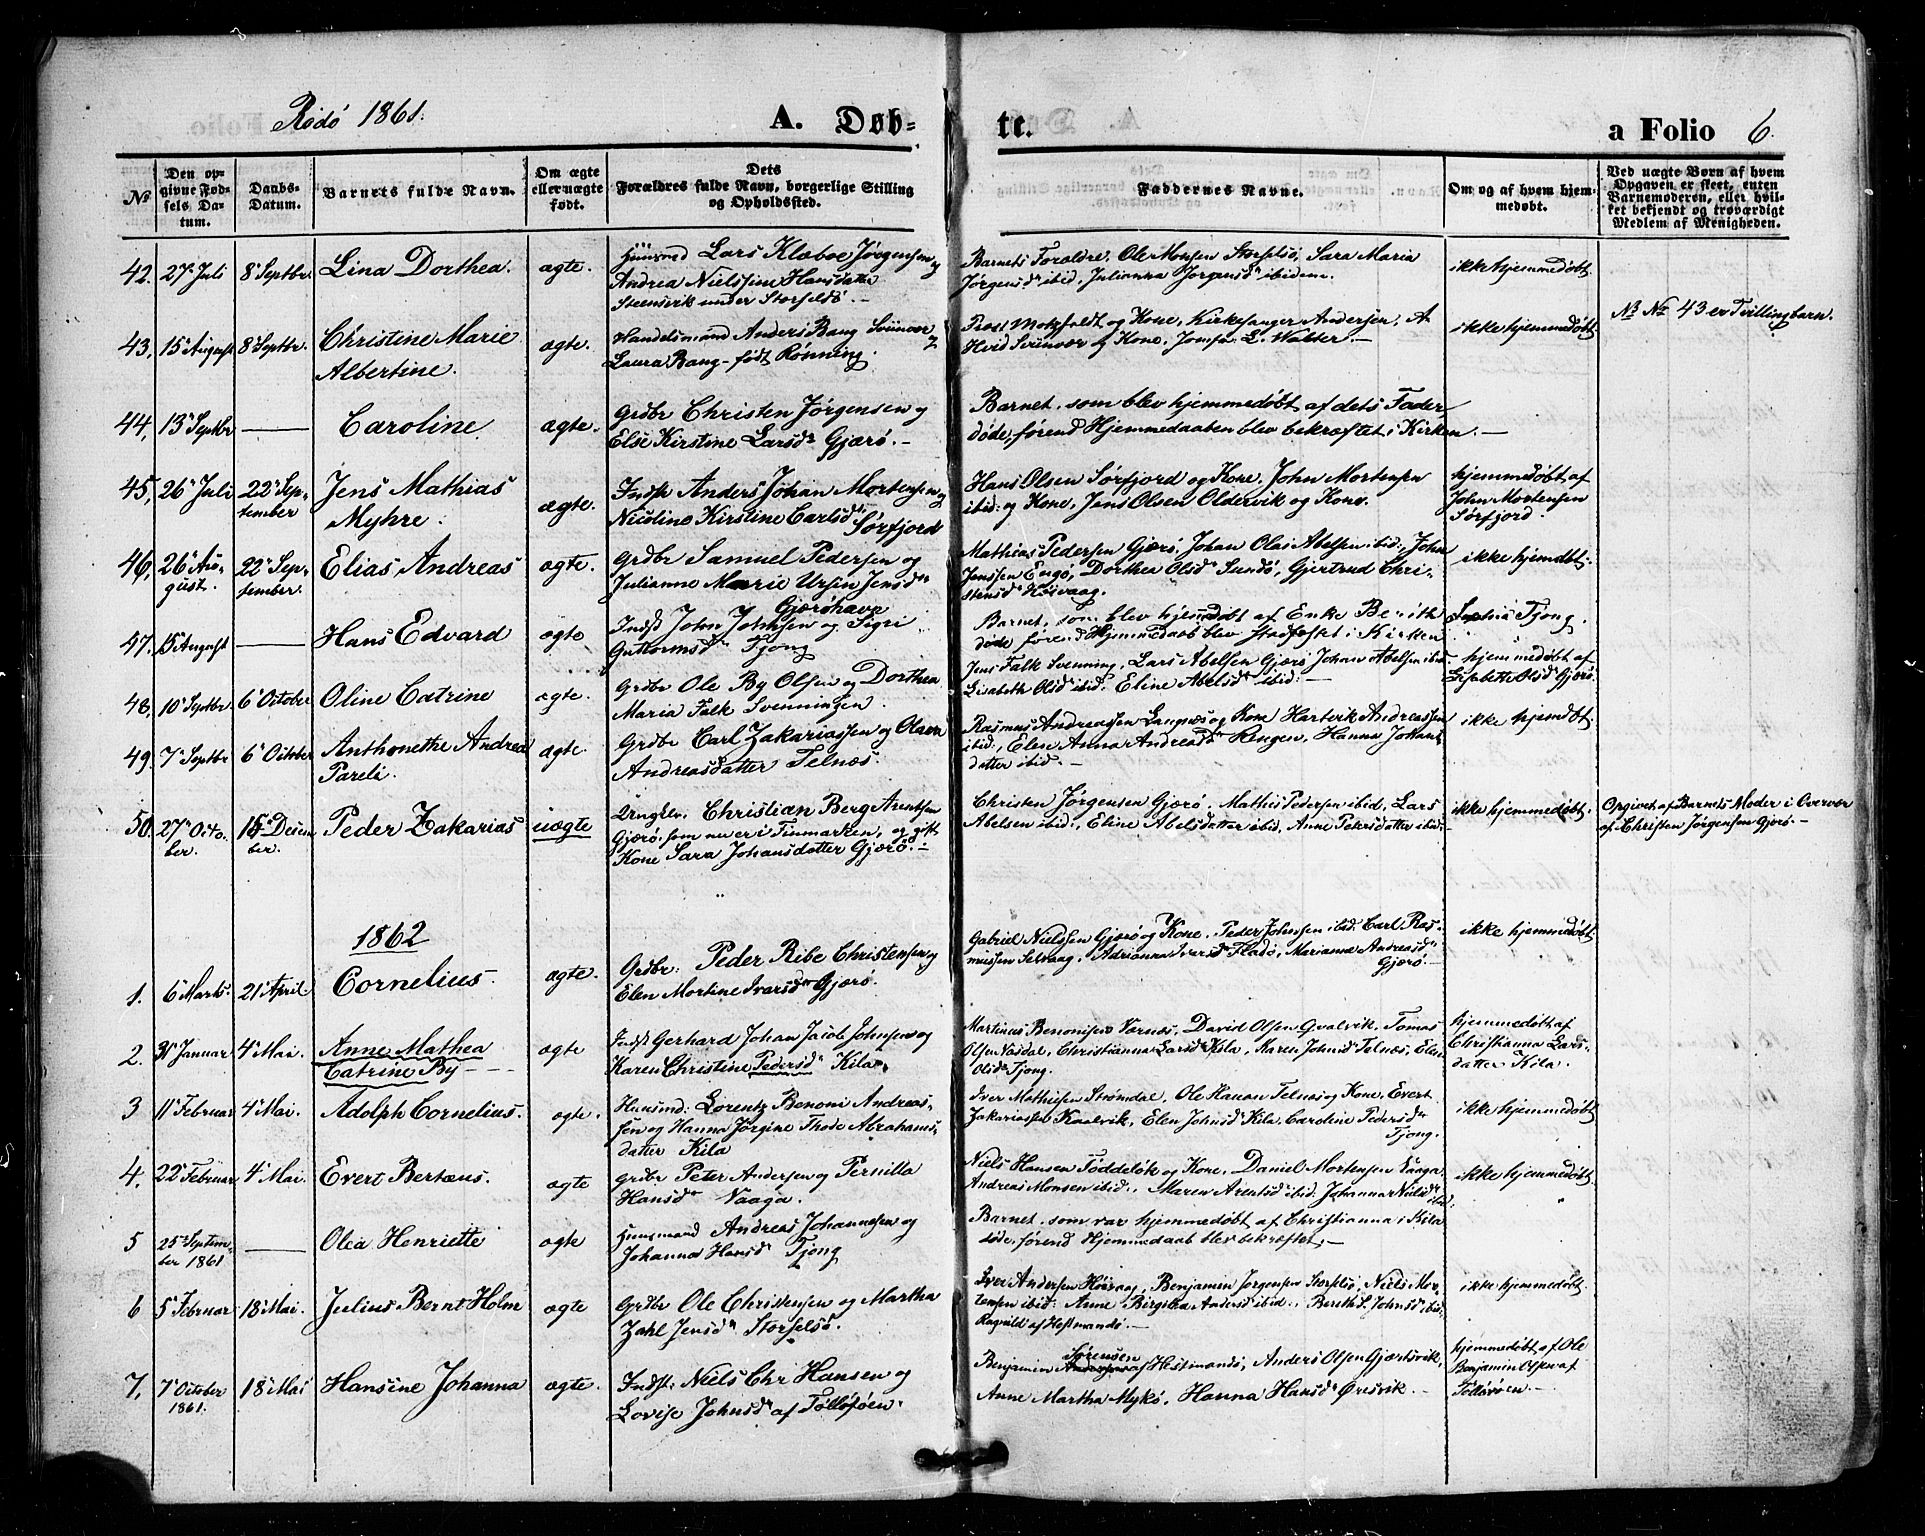 Rödö 1861.
A. Døb-
te.
a Folio 6.
No
Den op-
givne Fød-
sels Da-
tum.
Daabs-
Datum.
Barnets fulde Navn.
Om ægte
eller uægte
født.
Dets
Forældres fulde Navn, borgerlige Stilling
og Opholdssted.
Faddernes Navne.
Om og af hvem hjem-
medøbt.
Ved uægte Børn af hvem
Opgaven er skeet, enten
Barnemoderen, eller hvil-
ket bekjendt og troværdigt
Medlem af Menigheden.
42. 27 Juli 8 Septbr. Lina Dorthea. ægte. Huusmd Lars Klæboe Jørgensen og
Andrea Nielssine Hansdatter
Steensvik under Storselsö.
Barnets Forældre, Ole Monsen Storselsö, Sara Maria
Jørgensdr ibid, Julianna Jørgensdr ibidem.
ikke hjemmedøbt
43. 15 August 8 Septbr. Christine Marie
Albertine. ægte. Handelsmand Anders Bang Svinvær og
Laura Bang født Rønning.
Prost Motzfeldt og Kone, Kirkesanger Andersen, A
Hvid Svinvær og Kone, Jomfru L. Walter.
ikke hjemmedøbt
NB No 43 er Tvillingbarn.
44, 13 Septbr — Caroline. ægte. Grdbr Christen Jørgensen og
Else Kirstine Larsdr Gjærö.
Barnet, som blev hjemmedøbt af dets Fader,
døde, førend Hjemmedaaben blev bekræftet i Kirken.
45, 26 Juli 22 Sep-
tember Jens Mathias
Myhre. ægte. Indst Anders Johan Mortensen og
Nicoline Kirstine Carlsdr Sørfjord
Hans Olsen Sørfjord og Kone, John Mortensen
ibid: og Kone, Jens Olsen Oldervik og Kone.
hjemmedøbt af
John Mortensen
Sørfjord.
46, 26 Au-
gust. 22 Sep-
tember. Elias Andreas ægte. Grdbr Samuel Pedersen og
Julianne Marie Ursin Jensdr
Gjeröhavn
Mathias Pedersen Gjærö, Johan Olai Abelsen ibid: John
Jenssen Engö, Dorthea Olsdr Sundö, Gjertrud Chri-
stensdr Høivaag.
ikke hjemdøbt.
47. 15 August — Hans Edvard ægte Indst John Johnsen og Sigri
Guttormsdr Tjong
Barnet, som blev hjemmedøbt af Enke Berith Sophia Tjong.
døde førend Hjemmedaab blev stadfæstet i Kirken
48, 10 Septbr 6 October Oline Catrine ægte. Grdbr Ole By Olsen og Dorthea
Maria Falk Svenningen.
Jens Falk Svenning, Lars Abelsen Gjærö Johan Abelsen ibid.
Lisabeth Olsdr ibid. Eline Abelsdr ibid:
hjemmedøbt af
Lisbette Olsdr Gjærö.
49. 7 Septbr 6 October Anthonethe Andrea
Pareli. ægte. Grdbr Carl Zakariassen og Olava
Andreasdatter Telnæs.
Rasmus Andreassen Langnes og Kone Hartvik Andreassen
ibid:, Elen Anna Andreasdr Rengen, Hanna Johans
datter ibid.
ikke hjemdøbt.
50. 27 Octo-
ber. 16 Desem
ber. Peder Zakarias uægte Ungkr. Christian Berg Arentsen
Gjærö, som nu er i Finmarken, og gift
Kone Sara Johansdatter Gjærö.
Christen Jørgensen Gjærö, Mathis Pedersen ibid, Lars
Abelsen ibid:, Eline Abelsdatter ibid, Anne Petersdatter ibid.
ikke hjemmedøbt.
Opgivet af Barnets Moder i Overvær
af Christen Jørgensen Gjærö.
1862
1. 6 Marts. 21 April Cornelius. ægte. Grdbr: Peder Ribe Christensen og
Elen Mortine Ivarsdr Gjærö.
Gabriel Nielssen Gjærö og Kone, Peder Johnsen ibid. Carl Ras-
mussen Selvaag, Adrianna Ivarsdr Fladö, Marianna Andreasdr
Gjærö.
ikke hjemmedøbt
2. 31 Januar 4 Mai. Anne Mathea
Catrine By ægte Indst Gerhard Johan Jacob Johnsen og
Karen Christine Pedersdr Kila.
Martinus Benonisen Værnes, David Olsen Gvalvik, Tomas
Olsen Vasdal, Christianna Larsdr Kila, Maren Johnsdr Telnæs, Elen
Olsdr Tjong.
hjemmedøbt af
Christianna Lars-
datter Kila.
3 11 Februar 4 Mai. Adolph Cornelius. ægte. Huusmd: Lorentz Benoni Andreas-
sen og Hanna Jörgine Thode Abrahams-
datter Kila
Iver Mathisen Strømdal, Ole Hansen Telnæs og Kone, Evert
Zakariassen Kaalvik, Elen Johnsdr Kila, Caroline Pedersdr
Tjong.
ikke hjemmedøbt
4. 22 Februar 4 Mai. Evert Bertæus. ægte Grdbr Peter Andersen og Pernilla
Hansdr Vaaga.
Niels Hansen Føddelök og Kone, Daniel Mortensen Vaaga
Andreas Monsen ibid:, Maren Arentsdr ibid: Johanna Nielsdr
ibid.
ikke hjemmedøbt.
5 25 Septem-
ber 1861 — Olea Henriette ægte Huusmand Andreas Johannesen og
Johanna Hansdr Tjong
Barnet, som var hjemmedøbt af Christianna i Kila
døde, førend Hjemmedaab blev bekræftet.
6 5 Februar 18 Mai. Julius Bernt Holm ægte Grdbr Ole Christensen og Martha
Zahl Jensdr Storselsö.
Iver Andersen Høivaag, Benjamin Jørgensen Storselsö, Niels Mor-
tensen ibid: Anne Birgitha Andersdr ibid., Berith S. Johnsdr ibid
Ragnild af Hestmandö.
ikke hjemmedøbt.
7, 7 October
1861. 18 Mai Hansine Johanna ægte. Indst: Niels Chr Hansen og
Lovise Johnsdr af Tölløföen.
Benjamin Sørensen af Hestmandö, Anders Olsen Gjærsvik,
Anne Martha Mykö, Hanna Hansdr Øresvik.
hjemmedøbt af Ole
Benjamin Olsen af